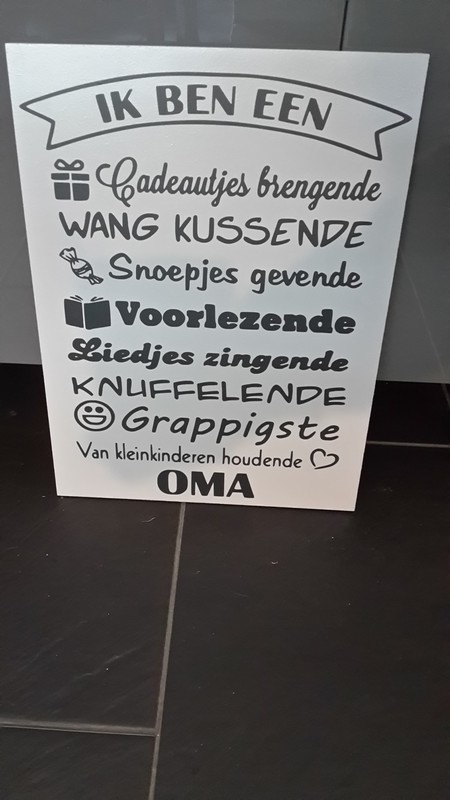 IK BEN EEN
Cadeautjes brengende
WANG KUSSENDE
Snoepjes gevende
Voorlezende
Liedjes zingende
KNUFFELENDE
Grappigste
Van kleinkinderen houdende
OMA